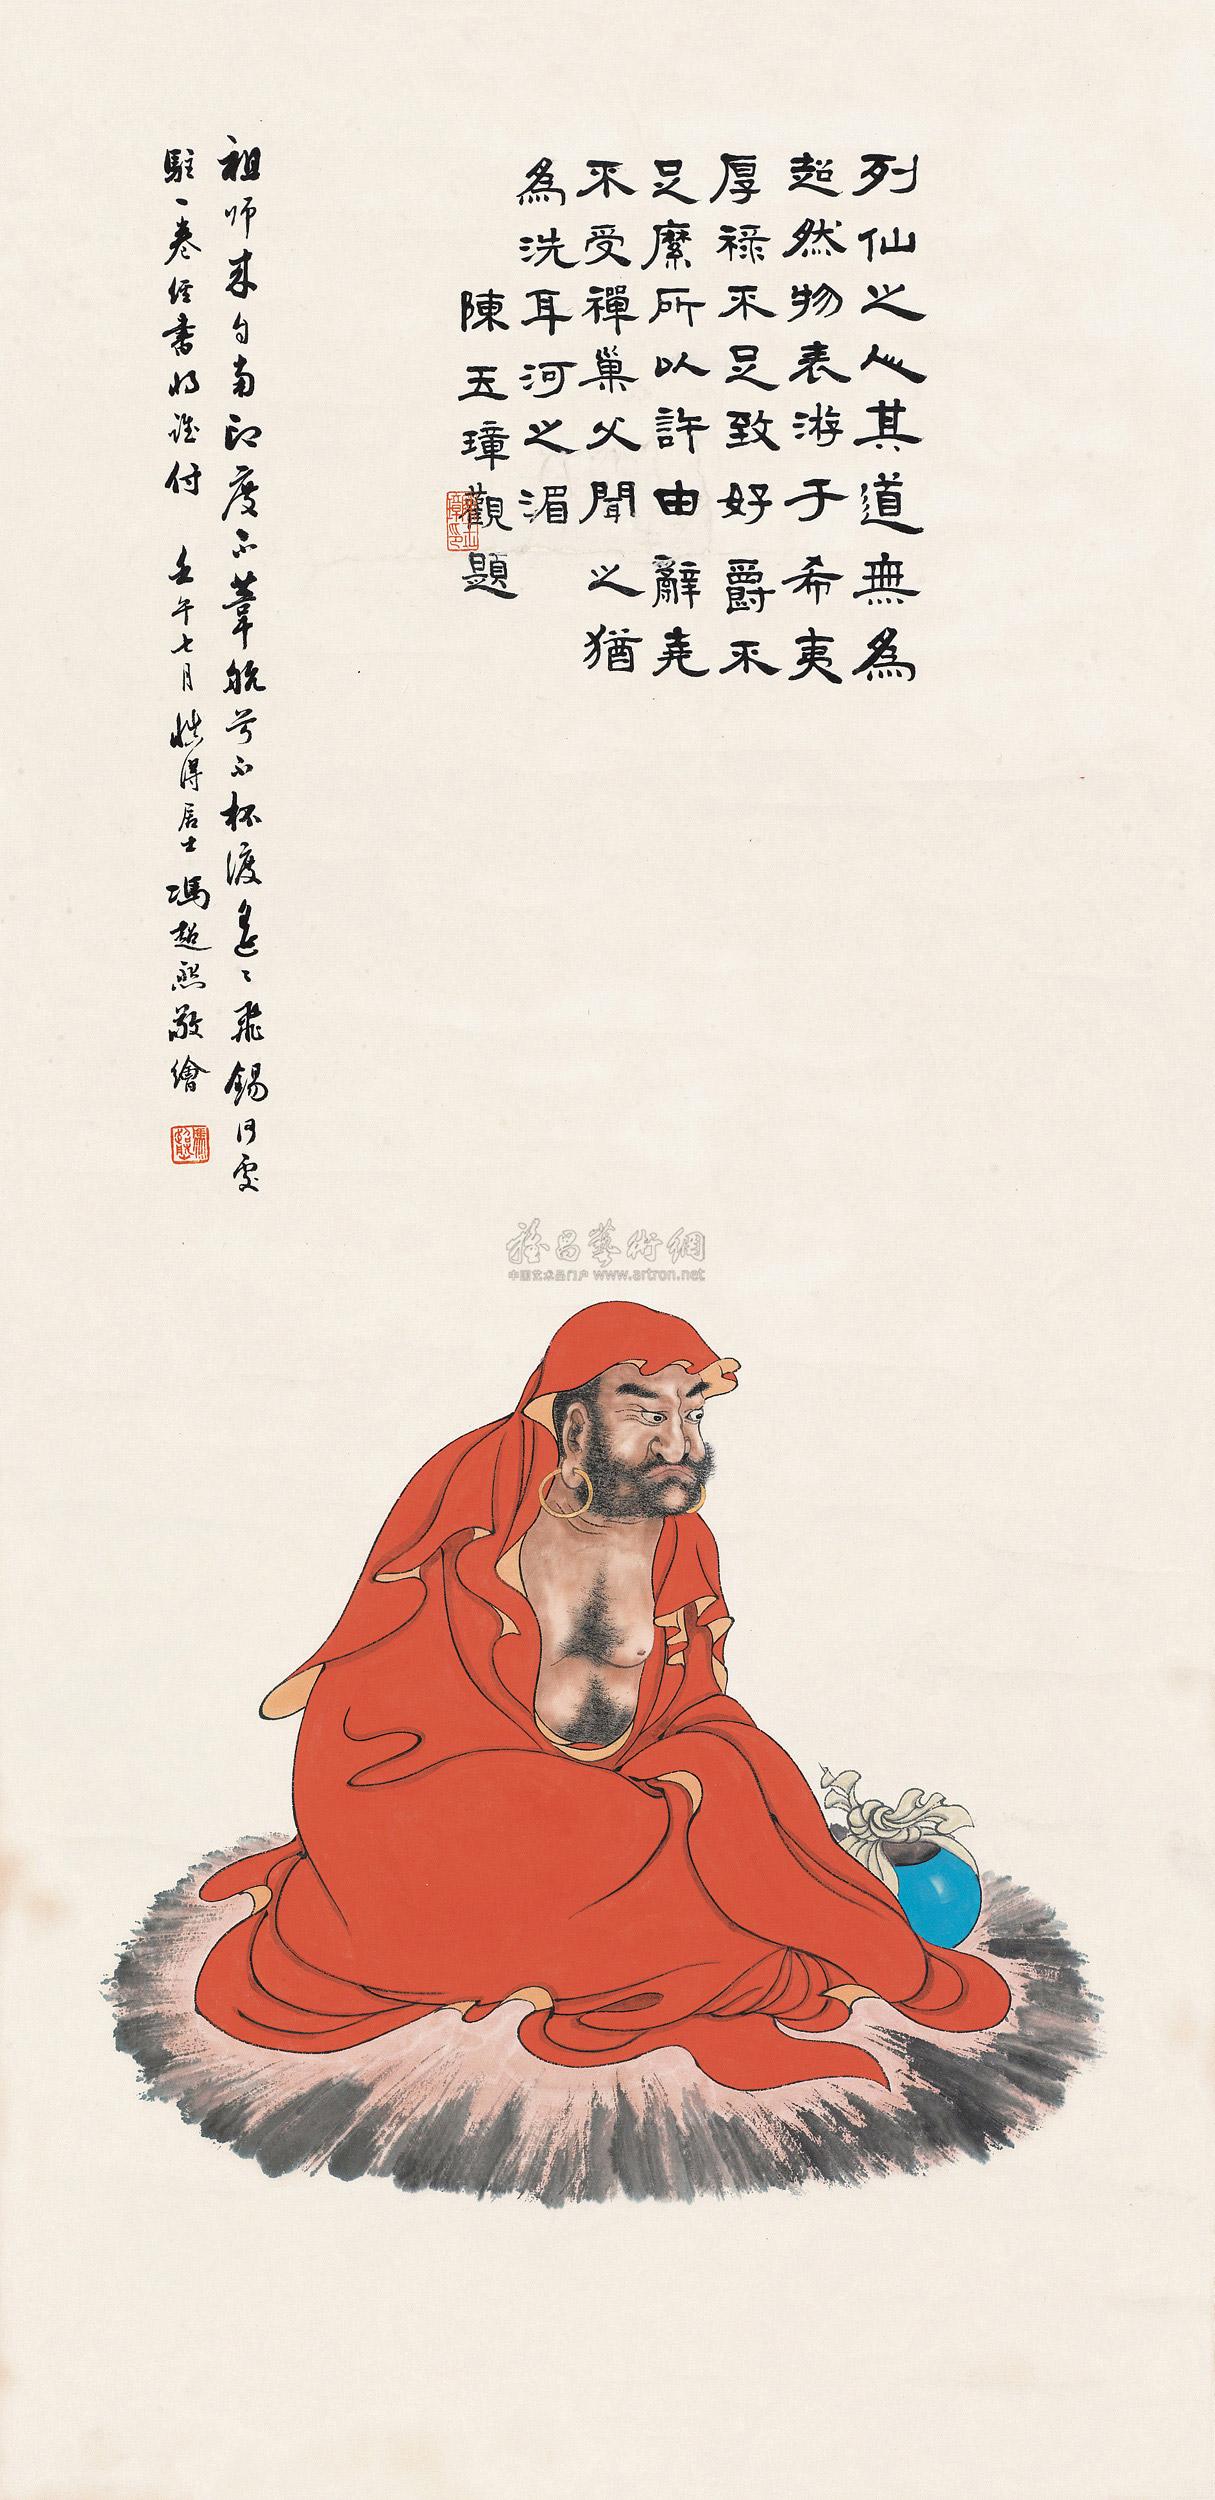 列仙之心其道無為
超然物表游于希夷
厚祿不足致好爵不
足縻所以許由辭堯
不受禪巢父聞之猶
為洗耳河之湄
陳玉璋觀題
祖師來自南印度不葦航兮不杯渡遙遙飛錫何處
駐一卷經書將誰付 壬午七月 慎得居士馮超然敬繪
雅昌藝術網
中国艺术品门户 www.artron.net